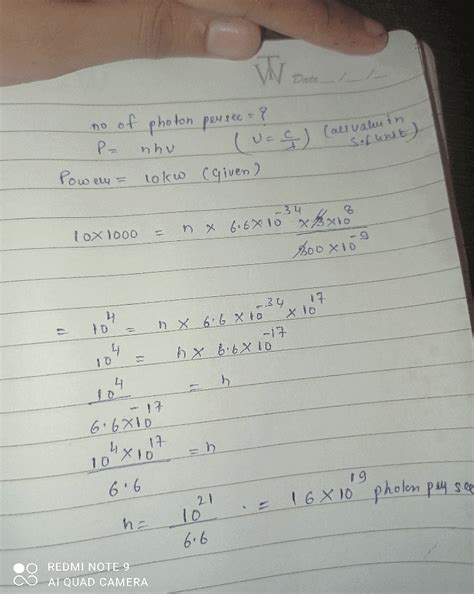 TW Date __/__/__
no of photon per sec = ?
P = nhν (ν = c/λ) (all value in S.I unit)
Power = 10kw (given)
10×1000 = n × 6.6×10^-34 × 3×10^8 / 300×10^-9
= 10^4 = n × 6.6×10^-34 × 10^17
10^4 = n × 6.6×10^-17
10^4 / 6.6×10^-17 = n
10^4×10^17 / 6.6 = n
n = 10^21 / 6.6 . = 16×10^19 photon per sec
REDMI NOTE 9
AI QUAD CAMERA